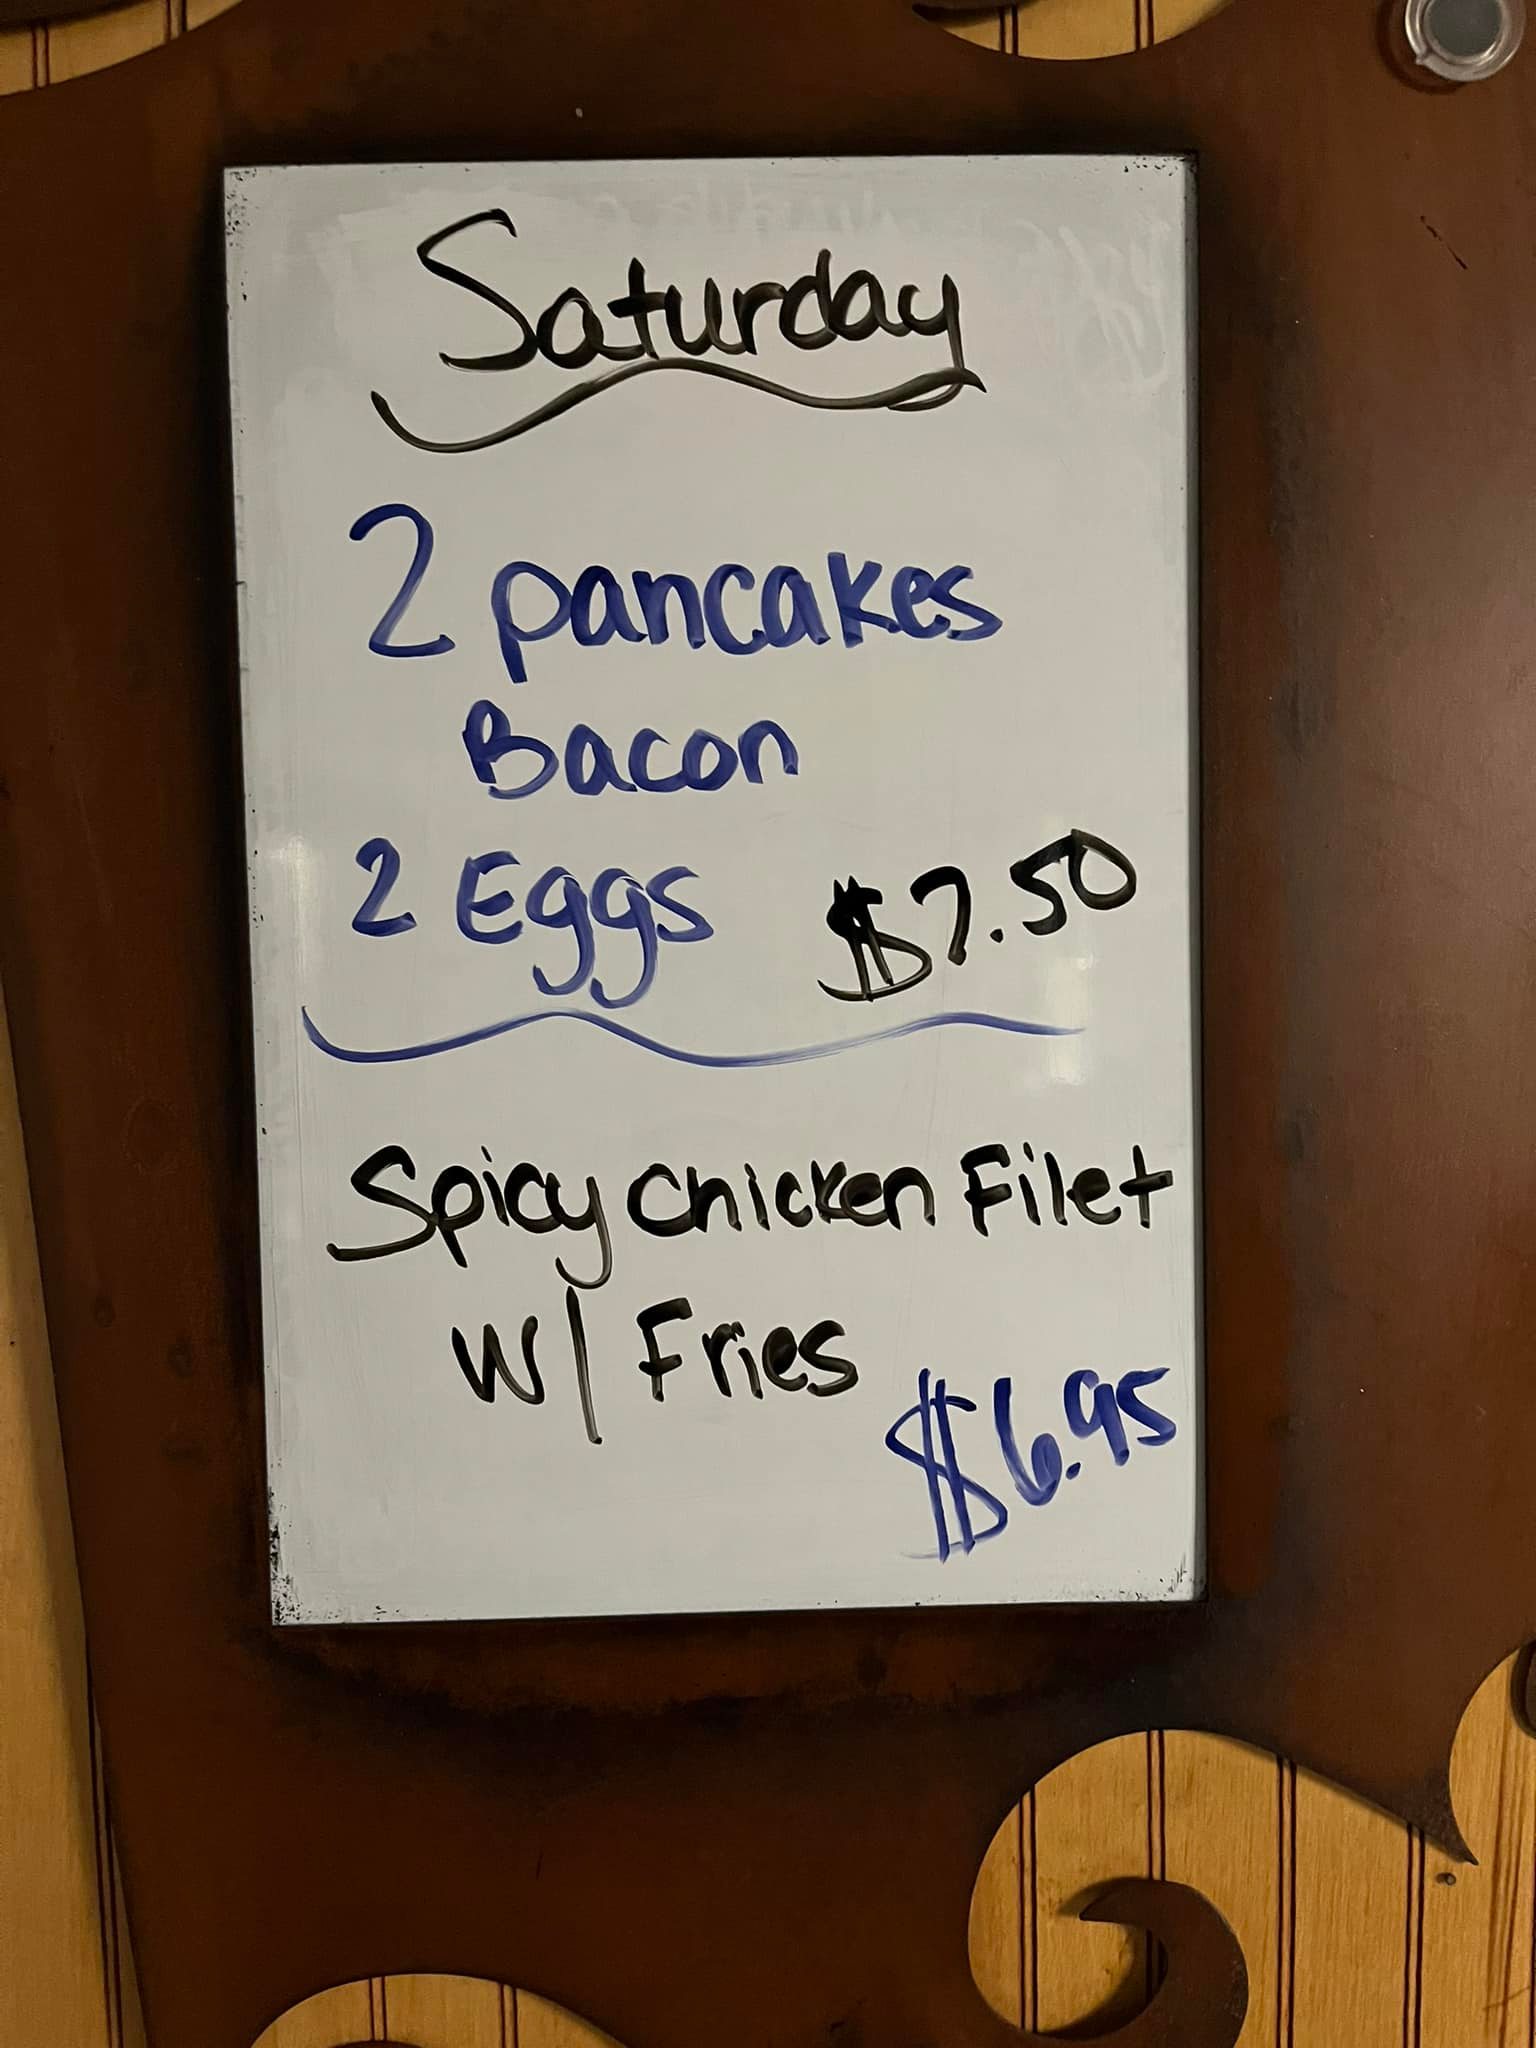 Saturday
2 pancakes
Bacon
2 Eggs $7.50
Spicy Chicken Filet
w/ Fries
$6.95